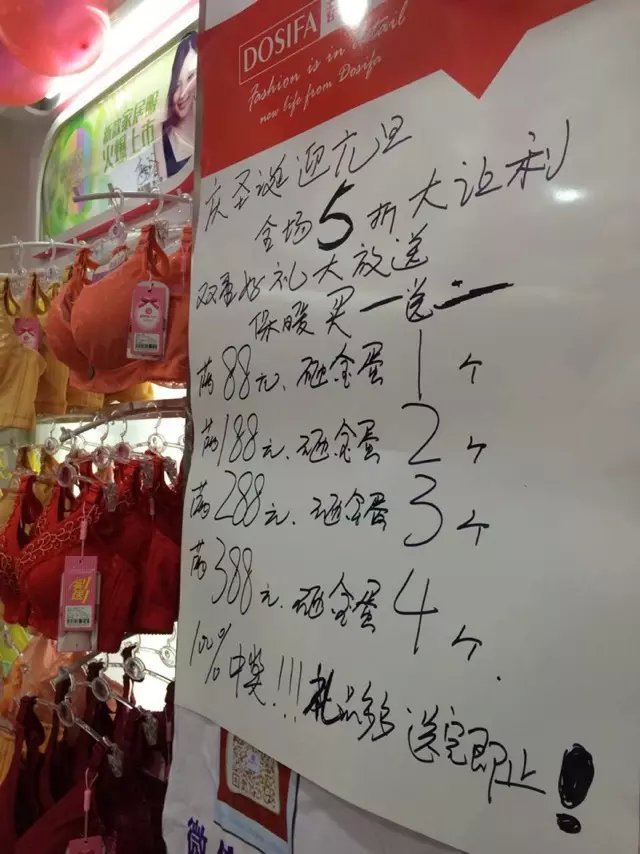 DOSIFA
Fashion is in detail
new life from Dosifa
庆圣诞迎元旦
全场5折大让利
双重好礼大放送
保暖买一送一
满88元、砸金蛋1个
满188元、砸金蛋2个
满288元、砸金蛋3个
满388元、砸金蛋4个
100%中奖!!!礼品多多 送完即止!
家居服
火爆上市
微信